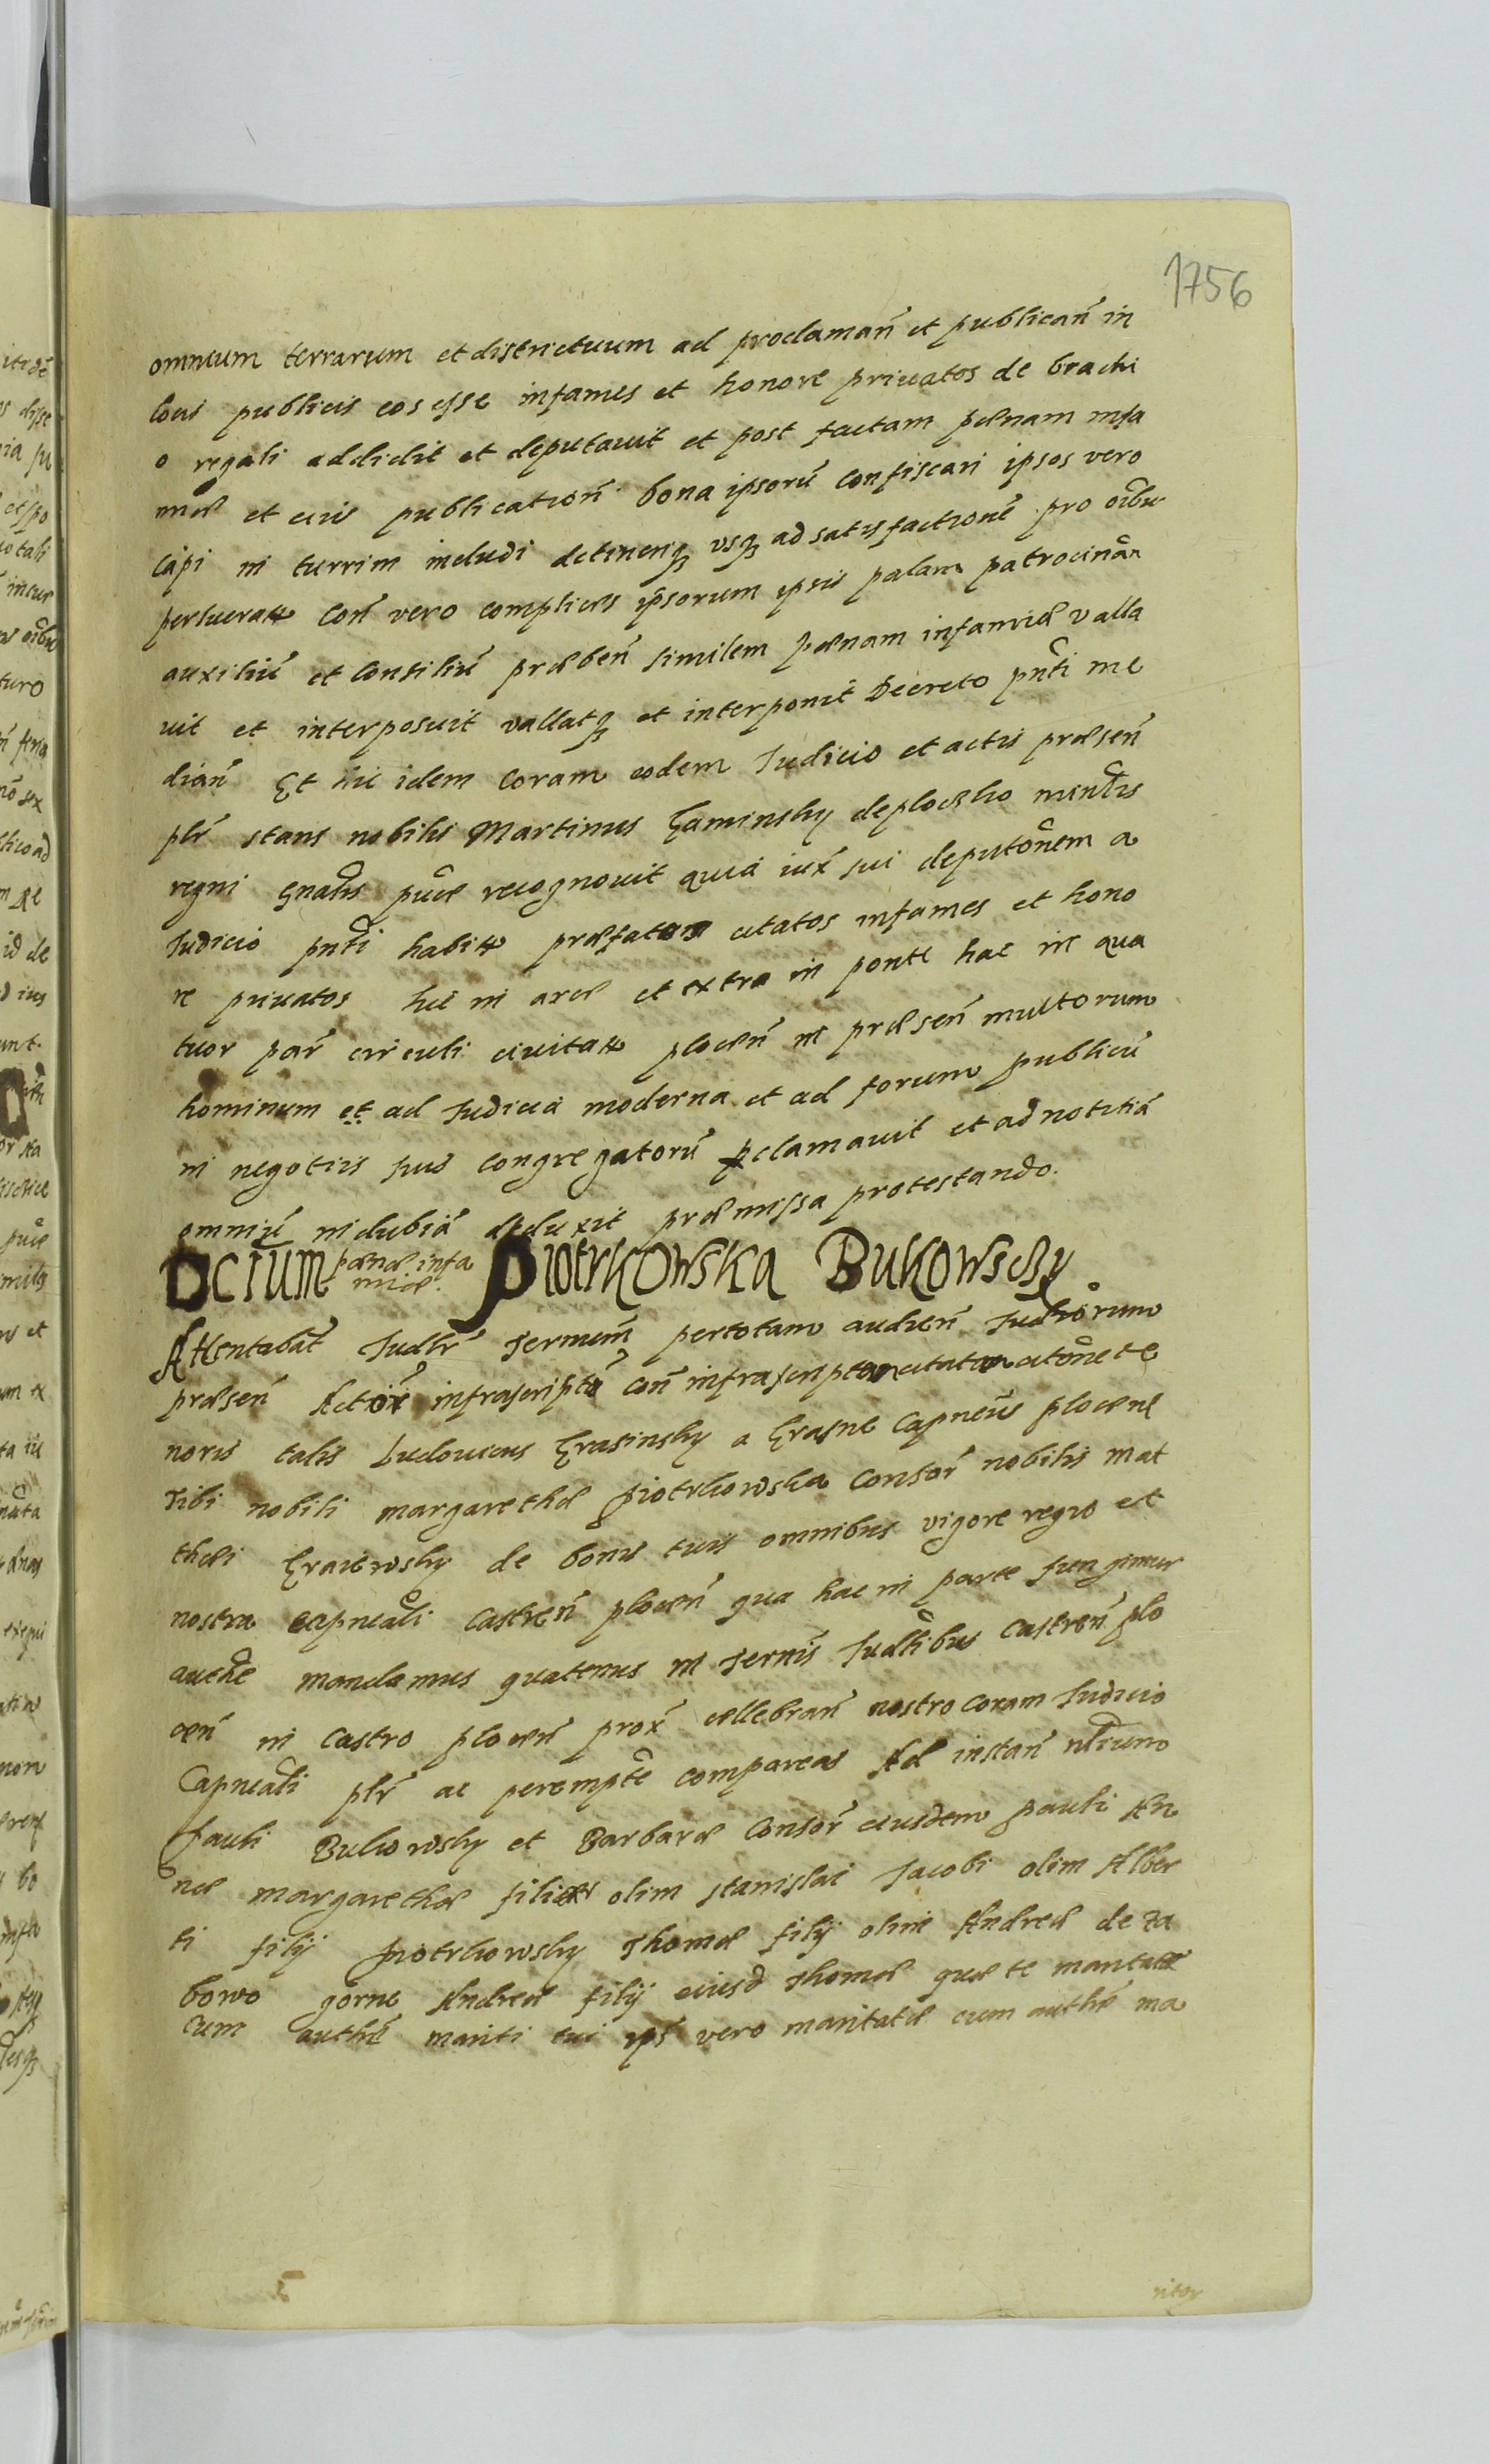 1756
omnium terrarum et districtuum ad proclamañ et publicañ in
locis publicis eos esse infames et honore priuatos de brachi
o regali addidit et deputauit et post factam pœnam infa
miæ et eius publicationẽ bona ipsorũ confiscari ipsos vero
capi in turrim includi detineriq3 vsq3 ad satisfactionẽ pro oĩbus
perlucratis Coñ vero complices ipsorum ipsis palam patrocinañ
auxiliũ et Consiliũ præbeñ similem pœnam infamiæ valla
uit et interposuit vallatq3 et interponit Decreto pñti me
diañ Et hic idem Coram eodem Judicio et actis præseñ
plr̃ stans nobilis Martinus Kaminsky de ploczko minrlis
regni gñalis puce recognouit quia iux̃ sui deputõnem a
Judicio pñti habitã præfatos citatos infames et hono
re priuatos hic in arce et extra in ponte hac in qua
tuor par̃ circuli ciuitatis plocen̄ in præseñ multorum
hominum et ad Judicia moderna et ad forum publicũ
in negotiis suis congregatorũ pclamauit et ad notitiã
omniũ indubiã deduxit præmissa protestando.
Octum pœnæ infa
miæ. Piotrkowska Bukowscsy
Attentabat̃ Judlr̃ Terminũ pertotam audieñ Judiciorum
præseñ Actor̃ infrascriptũ coñ infrascriptam citatam citõne te
noris talis Ludouicus Krasinsky a Krasne Capneus plocens
Tibi nobili margarethæ Piotrkowska Consor̃ nobilis Mat
thæi Kraiewsky de bonis tuis omnibus vigore regio et
nostra capneali Castreñ plocen̄ qua hac in parte fungimur
authẽ mandamus quatenus in Termis̃ Judlibus Castreñ plo
ceñ in Castro ploceñ prox̃ cellebrañ nostro coram Judicio
Capneali plr̃ ac perempte compareas Ad instañ nbilium
Pauli Bukowsky et Barbaræ Consor̃ eiusdem pauli An
næ margarethæ filiæ olim stanislai Jacobi olim Alber
ti filij Piotrkowsky Thomæ filij olim Andreæ de za
bowo gorne Andreæ filij eiusd Thomæ quæ te maritatæ
cum authẽ mariti tui ips̃ vero maritatæ cum authẽ ma
ritor